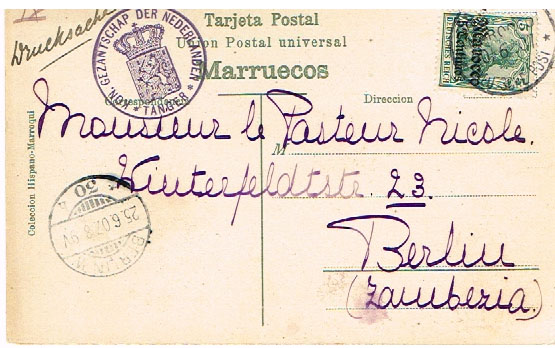 Drucksache
Tarjeta Postal
Union Postal universal
Marruecos
GEZANTSCHAP DER NEDERLANDEN
* TANGER *
5
DEUTSCHES REICH
Marocco
5 Centimos
POST
Correspondencia
Direccion
Coleccion Hispano-Marroqui
M
Monsieur le Pasteur Nicole.
Winterfeldtstr. 23.
Berlin
(Zambezia.)
* 30 a
25.6.07.8-9V
BERLIN W